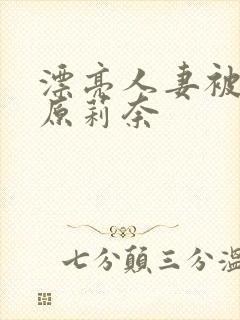 漂亮人妻被
原莉奈
七分顛三分溫